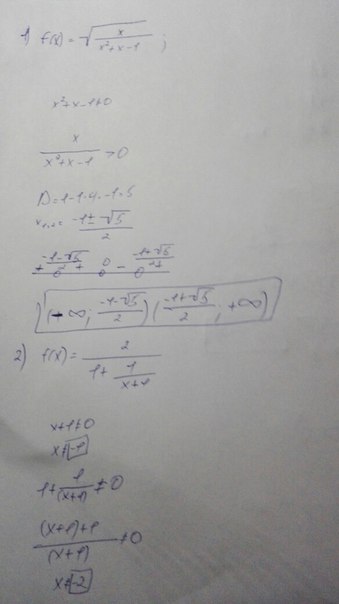 1) f(x) = √(x/(x²+x-1)) ;
x²+x-1≠0
x/(x²+x-1) >0
D=1-1·4·-1=5
x₁,₂= (-1±√5)/2
(-1-√5)/2 0 (-1+√5)/2
(-∞; (-1-√5)/2) ((-1+√5)/2; +∞)
2) f(x) = 2/(1+ 1/(x+1))
x+1≠0
x≠-1
1+ 1/(x+1) ≠0
((x+1)+1)/(x+1) ≠0
x≠-2